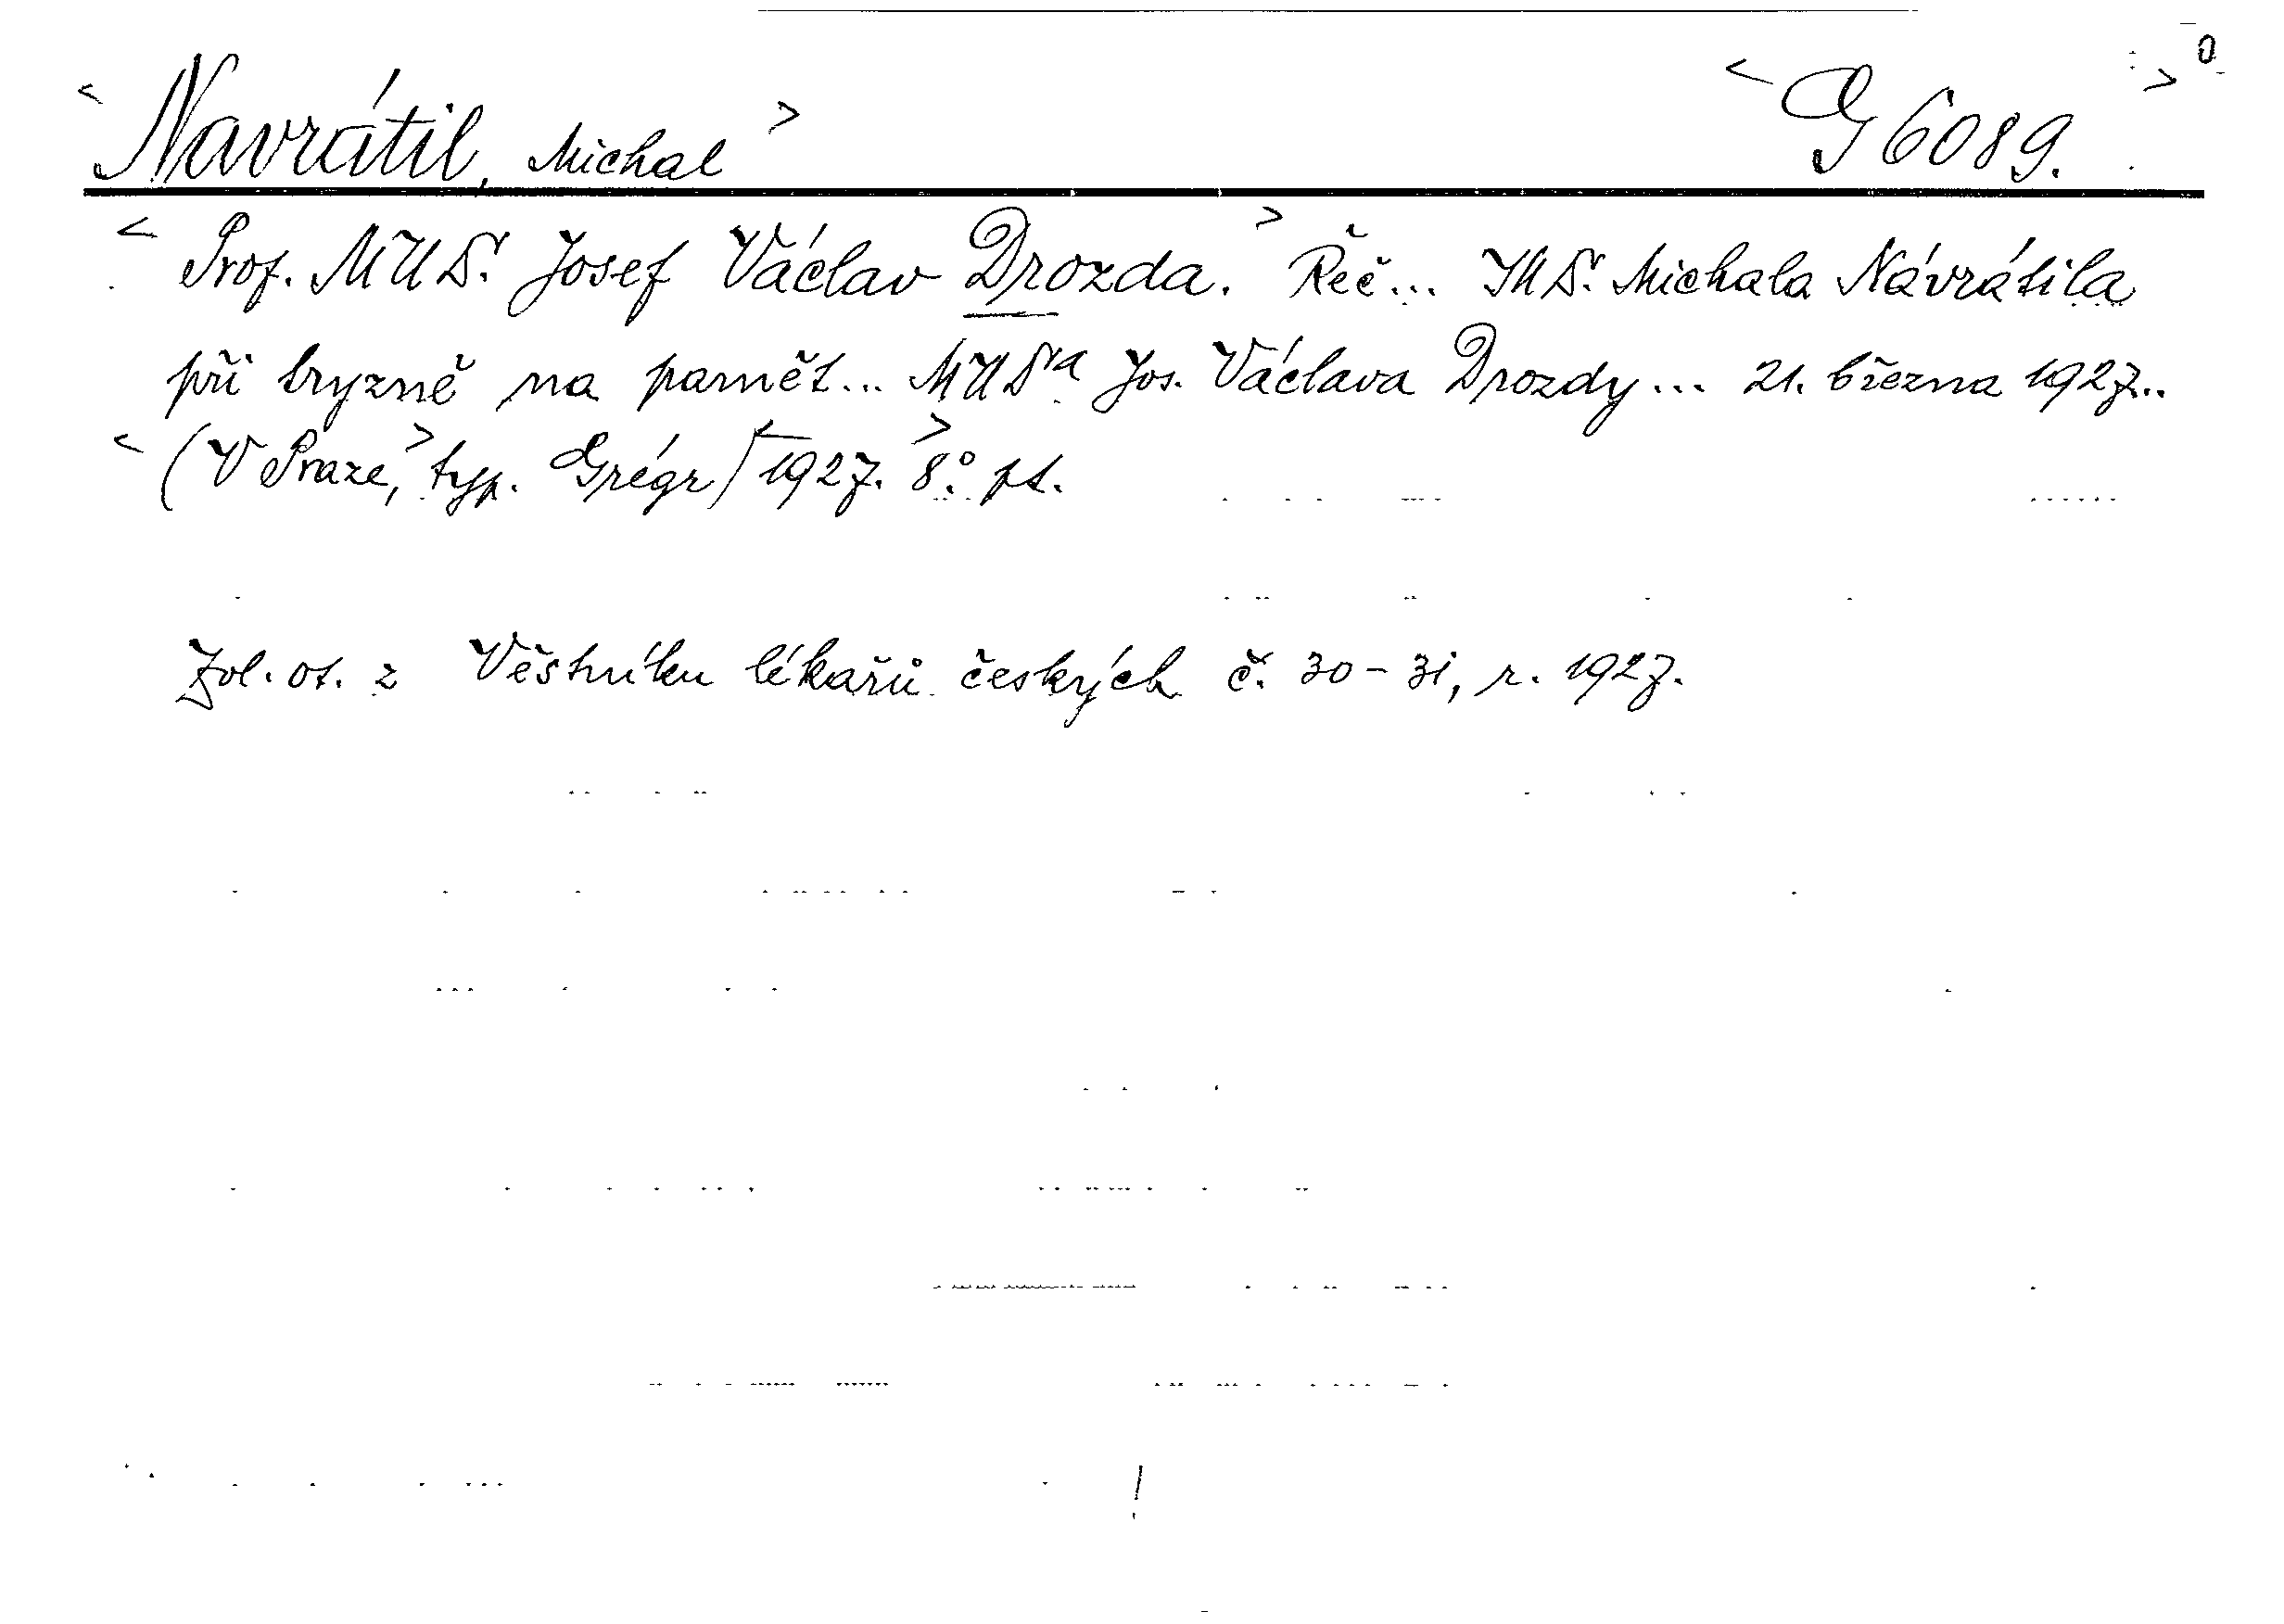 < Navrátil, Michal > < G 6089. > 0
< Prof. MUDr. Josef Václav Drozda. > Řeč... JUDr. Michala Návrátila
při tryzně na pamět... MUDra Jos. Václava Drozdy... 21. března 1927...
< (V Praze, > typ. Grégr) 1927. > 8° pt.
Zvl. ot. z Věstníku lékařů českých č. 30-31, r. 1927.